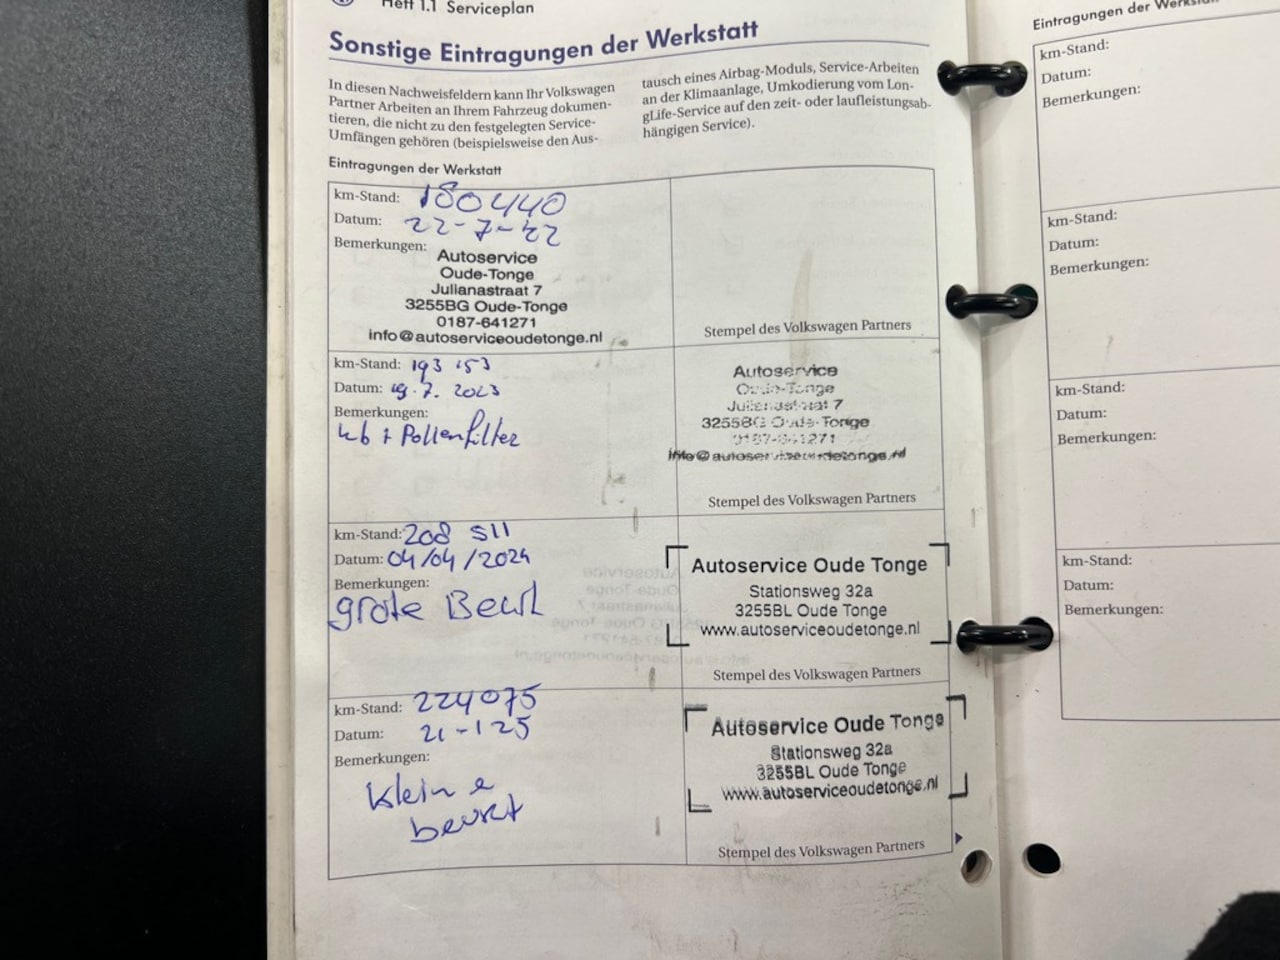 Heft 1.1 Serviceplan
Sonstige Eintragungen der Werkstatt
In diesen Nachweisfeldern kann Ihr Volkswagen
Partner Arbeiten an Ihrem Fahrzeug dokumen-
tieren, die nicht zu den festgelegten Service-
Umfängen gehören (beispielsweise den Aus-
tausch eines Airbag-Moduls, Service-Arbeiten
an der Klimaanlage, Umkodierung vom Lon-
gLife-Service auf den zeit- oder laufleistungsab-
hängigen Service).
Eintragungen der Werkstatt
km-Stand: 180440
Datum: 22-7-22
Bemerkungen:
Autoservice
Oude-Tonge
Julianastraat 7
3255BG Oude-Tonge
0187-641271
info@autoserviceoudetonge.nl
Stempel des Volkswagen Partners
km-Stand: 193 153
Datum: 19.7.2023
Bemerkungen:
Pollenfilter
Autoservice
Oude-Tonge
Julianastraat 7
3255BG Oude-Tonge
0187-641271
info@autoserviceoudetonge.nl
Stempel des Volkswagen Partners
km-Stand: 208 511
Datum: 04/04/2024
Bemerkungen:
grote Beurt
Autoservice Oude Tonge
Stationsweg 32a
3255BL Oude Tonge
www.autoserviceoudetonge.nl
Stempel des Volkswagen Partners
km-Stand: 224075
Datum: 21-1-25
Bemerkungen:
kleine
beurt
Autoservice Oude Tonge
Stationsweg 32a
3255BL Oude Tonge
www.autoserviceoudetonge.nl
Stempel des Volkswagen Partners
Eintragungen der Werkstatt
km-Stand:
Datum:
Bemerkungen:
km-Stand:
Datum:
Bemerkungen:
km-Stand:
Datum:
Bemerkungen:
km-Stand:
Datum:
Bemerkungen: